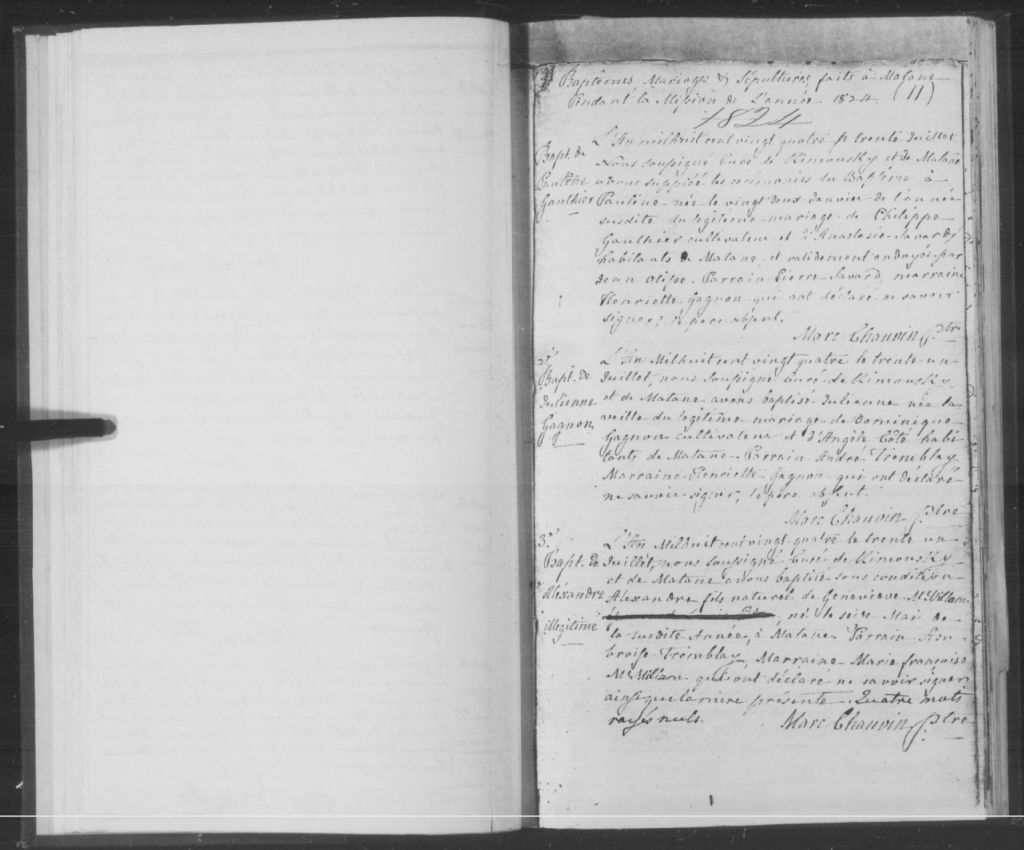 Baptêmes Mariages & Sépultures faits à Matane
Pendant la Mission de L'année 1824 (11)
1824
Bapt. de
Gauthier
L'An milhuit cent vingt quatre le trente Juillet
Nous soussigné Curé de Rimousky et de Matane
avons suppléé les cérémonies du Baptême à
Pauline née le vingt deux Janvier de l'année
susdite du légitime mariage de Philippe
Gauthier cultivateur et d'Anastasie Savard
habitants de Matane et validement ondoyée par
Jean. Parrain Pierre Savard, marraine
Henriette Gagnon qui ont déclaré ne savoir
signer, le père absent.
Marc Chauvin Ptre
2e
Bapt. de
Julienne
Gagnon
L'An Milhuit cent vingt quatre le trente un
Juillet, nous soussigné curé de Rimousky
et de Matane avons baptisé Julienne née la
veille du légitime mariage de Dominique
Gagnon cultivateur et d'Angèle Côté habi
tants de Matane. Parrain André Tremblay
Marraine Henriette Gagnon qui ont déclaré
ne savoir signer, le père absent.
Marc Chauvin Ptre
3e
Bapt. de
Alexandre
illégitime
L'An Milhuit cent vingt quatre le trente un
Juillet, nous soussigné Curé de Rimousky
et de Matane avons baptisé sous condition
Alexandre fils naturel de Genevieve McMillan
né le seise Mai de
la susdite Année, à Matane. Parrain Am-
broise Tremblay, Marraine Marie françoise
McMillan qui ont déclaré ne savoir signer
ainsi que la mère présente. Quatre mots
rayés nuls.
Marc Chauvin Ptre